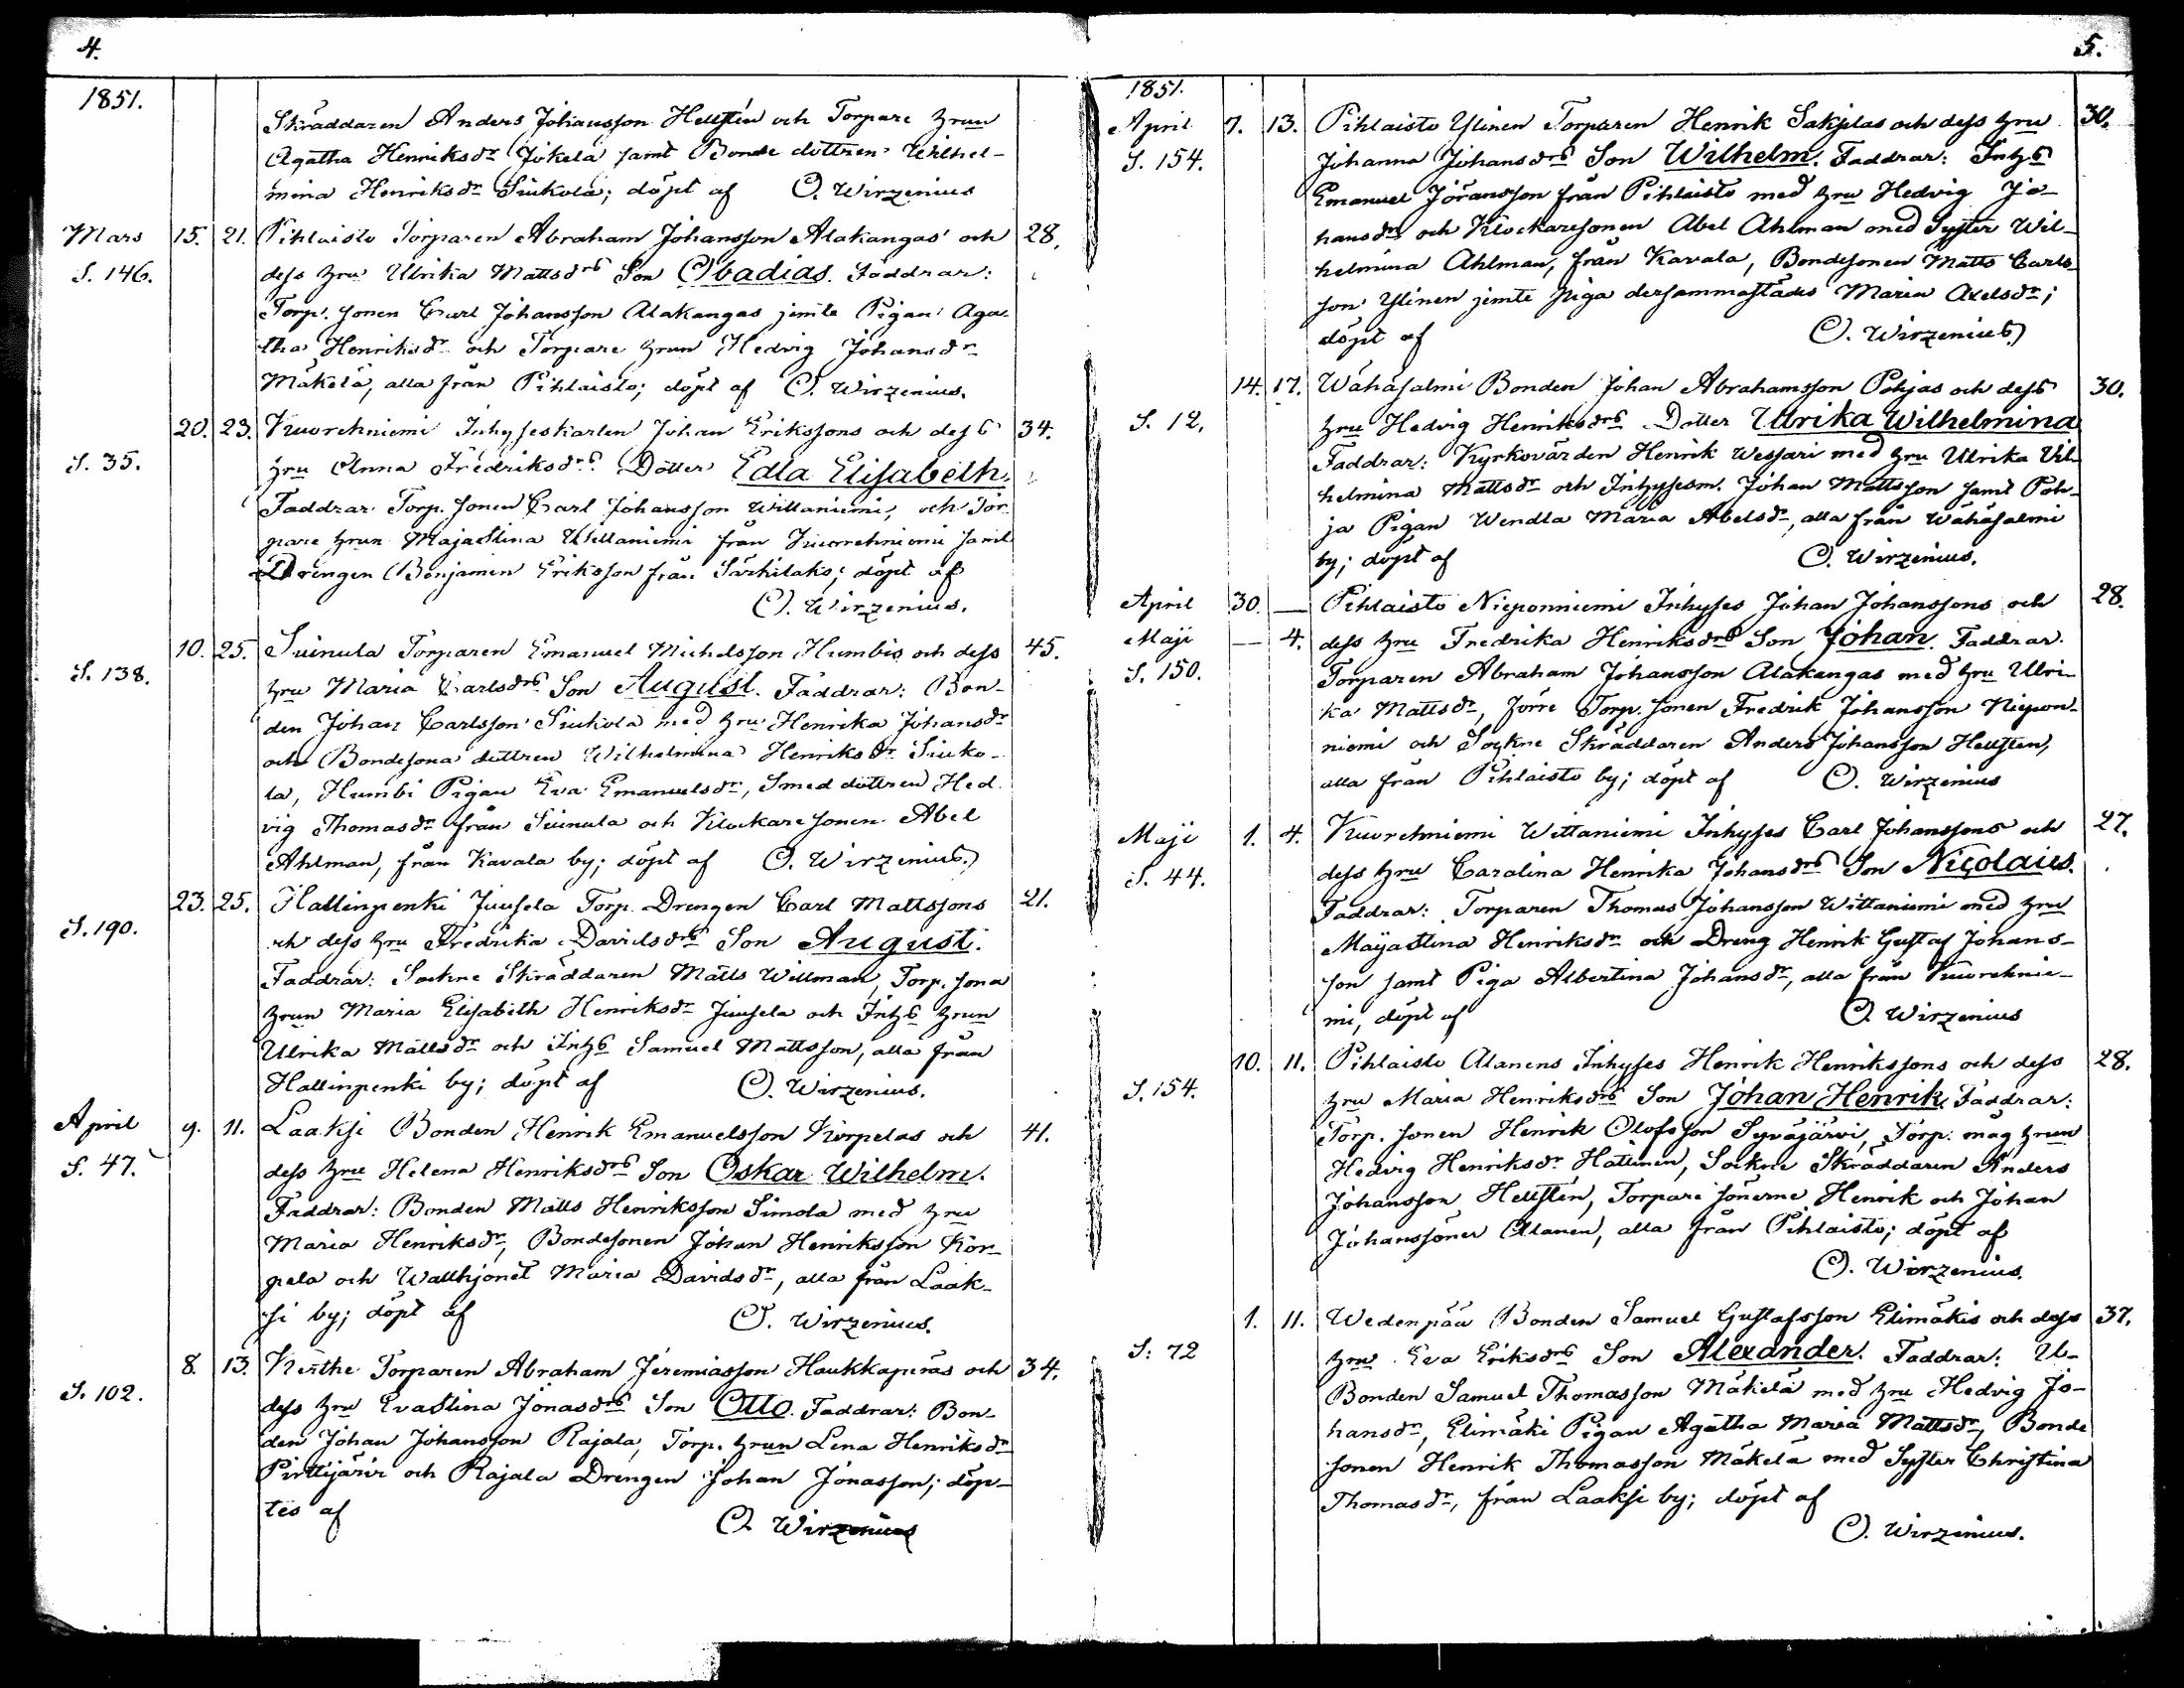 4.
1851.
Skräddaren Anders Johansson Hellstén och Torpare hrun
Agatha Henriksdr Jokela samt Bonde dottren Wilhel-
mina Henriksdr Siukola; döpt af O. Wirzenius
Mars 15. 21. Pihlaisto Torparen Abraham Johansson Alakangas och 28.
S. 146. dess hru Ulrika Mattsdrs Son Obadias. Faddrar:
Torp. sonen Carl Johansson Alakangas jemte Pigan Aga-
tha Henriksdr och Torpare hrun Hedvig Johansdr
Mäkelä, alla från Pihlaisto; döpt af O. Wirzenius.
20. 23. Kuorehniemi Inhyseskarlen Johan Erikssons och dess 34.
S. 35. hru Anna Fredriksdrs Dotter Edla Elisabeth.
Faddrar Torp. sonen Carl Johansson Wittaniemi, och Tor-
pare hrun Majastina Wittaniemi från Kuorehniemi samt
Drengen Benjamin Eriksson från Särkilaks; döpt af
O. Wirzenius.
10. 25. Suinula Torparen Emanuel Michelsson Humbis och dess 45.
S. 138. hru Maria Carlsdrs Son August. Faddrar: Bon-
den Johan Carlsson Siukola med hru Henrika Johansdr
och Bondesona dottren Wilhelmina Henriksdr Siuko-
la, Humbi Pigan Eva Emanuelsdr, Smed dottren Hed-
vig Thomasdr från Suinula och Klockare sonen Abel
Ahlman, från Kavala by; döpt af O. Wirzenius.
23. 25. Hallinpenki Juusela Torp. Drengen Carl Mattssons 21.
S. 190. och dess hru Fredrika Davidsdrs Son August.
Faddrar: Sockne Skräddaren Matts Willman, Torp. sona
hrun Maria Elisabeth Henriksdr Juusela och Inhs hrun
Ulrika Mattsdr och Inhs Samuel Mattsson, alla från
Hallinpenki by; döpt af O. Wirzenius.
April 9. 11. Laaksi Bonden Henrik Emanuelsson Korpelas och 41.
S. 47. dess hru Helena Henriksdrs Son Oskar Wilhelm.
Faddrar: Bonden Matts Henriksson Simola med hru
Maria Henriksdr, Bondesonen Johan Henriksson Kor-
pela och Wallhjonet Maria Davidsdr, alla från Laak-
si by; döpt af O. Wirzenius.
8. 13. Torparen Abraham Jeremiasson Haukkaperäs och 34.
S. 102. dess hru Evastina Jonasdrs Son Otto. Faddrar: Bon-
den Johan Johansson Rajala, Torp. hrun Lena Henriksdr
Pirttijärvi och Rajala Drengen Johan Jonasson; döp-
tes af O. Wirzenius
5.
1851.
April 7. 13. Pihlaisto Ylinen Torparen Henrik Sakjelas och dess hru 30.
S. 154. Johanna Johansdrs Son Wilhelm. Faddrar: Inhs
Emanuel Jöransson från Pihlaisto med hru Hedvig Jo-
hansdr och Klockaresonen Abel Ahlman med Syster Wil-
helmina Ahlman, från Kavala, Bondesonen Matts Carls-
son Ylinen jemte piga dersammastädes Maria Axelsdr;
döpt af O. Wirzenius
14. 17. Wähäsalmi Bonden Johan Abrahamsson Pohjas och dess 30.
S. 12. hru Hedvig Henriksdrs Dotter Ulrika Wilhelmina
Faddrar: Kyrkovärden Henrik Wessari med hru Ulrika Vil-
helmina Mattsdr och Inhysesm. Johan Mattsson samt Poh-
ja Pigan Wendla Maria Abelsdr, alla från Wähäsalmi
by; döpt af O. Wirzenius.
April 30. — Pihlaisto Nieponniemi Inhyses Johan Johanssons och 28.
Maji — 4. dess hru Fredrika Henriksdrs Son Johan. Faddrar
S. 150. Torparen Abraham Johansson Alakangas med hru Ulri-
ka Mattsdr, förre Torp. sonen Fredrik Johansson Niepon-
niemi och Sockne Skräddaren Anders Johansson Hellsten,
alla från Pihlaisto by; döpt af O. Wirzenius
Maji 1. 4. Kuorehniemi Wittaniemi Inhyses Carl Johanssons och 27.
S. 44. dess hru Carolina Henrika Johansdrs Son Nicolaus.
Faddrar: Torparen Thomas Johansson Wittaniemi med hru
Majastina Henriksdr och Dreng Henrik Gustaf Johans-
son samt Piga Albertina Johansdr, alla från Kuorehnie-
mi, döpt af O. Wirzenius
10. 11. Pihlaisto Alanens Inhyses Henrik Henrikssons och dess 28.
S. 154. hru Maria Henriksdrs Son Johan Henrik. Faddrar:
Torp. sonen Henrik Olofsson Syväjärvi, Torp. måg hrun
Hedvig Henriksdr Hatinen, Sockne Skräddaren Anders
Johansson Hellstén, Torpare sönerne Henrik och Johan
Johanssöner Alanen, alla från Pihlaisto; döpt af
O. Wirzenius.
1. 11. Wedenpää Bonden Samuel Gustafsson Elimäkis och dess 37.
S. 72 hru Eva Eriksdrs Son Alexander. Faddrar: U-
Bonden Samuel Thomasson Mäkelä med hru Hedvig Jo-
hansdr, Elimäki Pigan Agatha Maria Mattsdr, Bonde
sonen Henrik Thomasson Mäkelä med Syster Christina
Thomasdr, från Laaksi by; döpt af
O. Wirzenius.